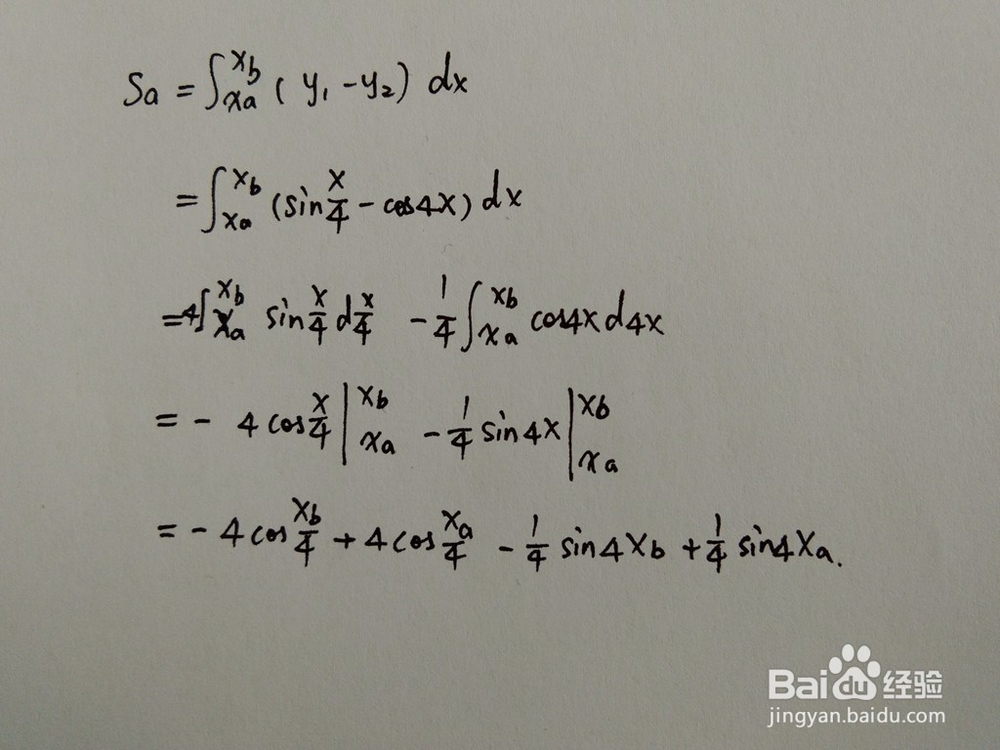 Sa = ∫_{xa}^{xb} (y₁ - y₂) dx
= ∫_{xa}^{xb} (sin x/4 - cos4x) dx
= 4∫_{xa}^{xb} sin x/4 d x/4 - 1/4 ∫_{xa}^{xb} cos4x d4x
= - 4 cos x/4 |_{xa}^{xb} - 1/4 sin4x |_{xa}^{xb}
= - 4 cos xb/4 + 4 cos xa/4 - 1/4 sin4xb + 1/4 sin4xa.
Baidu经验
jingyan.baidu.com